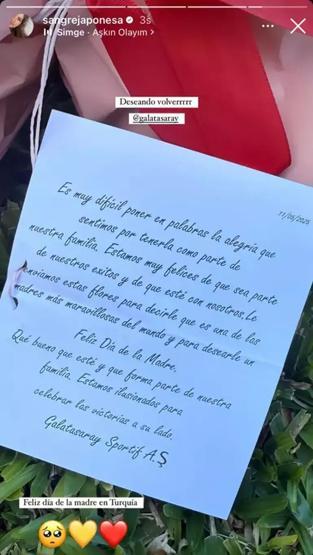 sangrejaponesa 3s
Simge · Aşkın Olayım >
Deseando volverrrrr
@galatasaray
11/05/2025
Es muy difícil poner en palabras la alegría que
sentimos por tenerla como parte de
nuestra familia. Estamos muy felices de que sea parte
de nuestros exitos y de que este con nosotros.Le
enviamos estas flores para decirle que es una de las
madres más maravillosas del mundo y para desearle un
Feliz Día de la Madre.
Qué bueno que esté y que forma parte de nuestra
familia. Estamos ilusionados para
celebrar las victorias a su lado.
Galatasaray Sportif A.Ş
Feliz día de la madre en Turquía